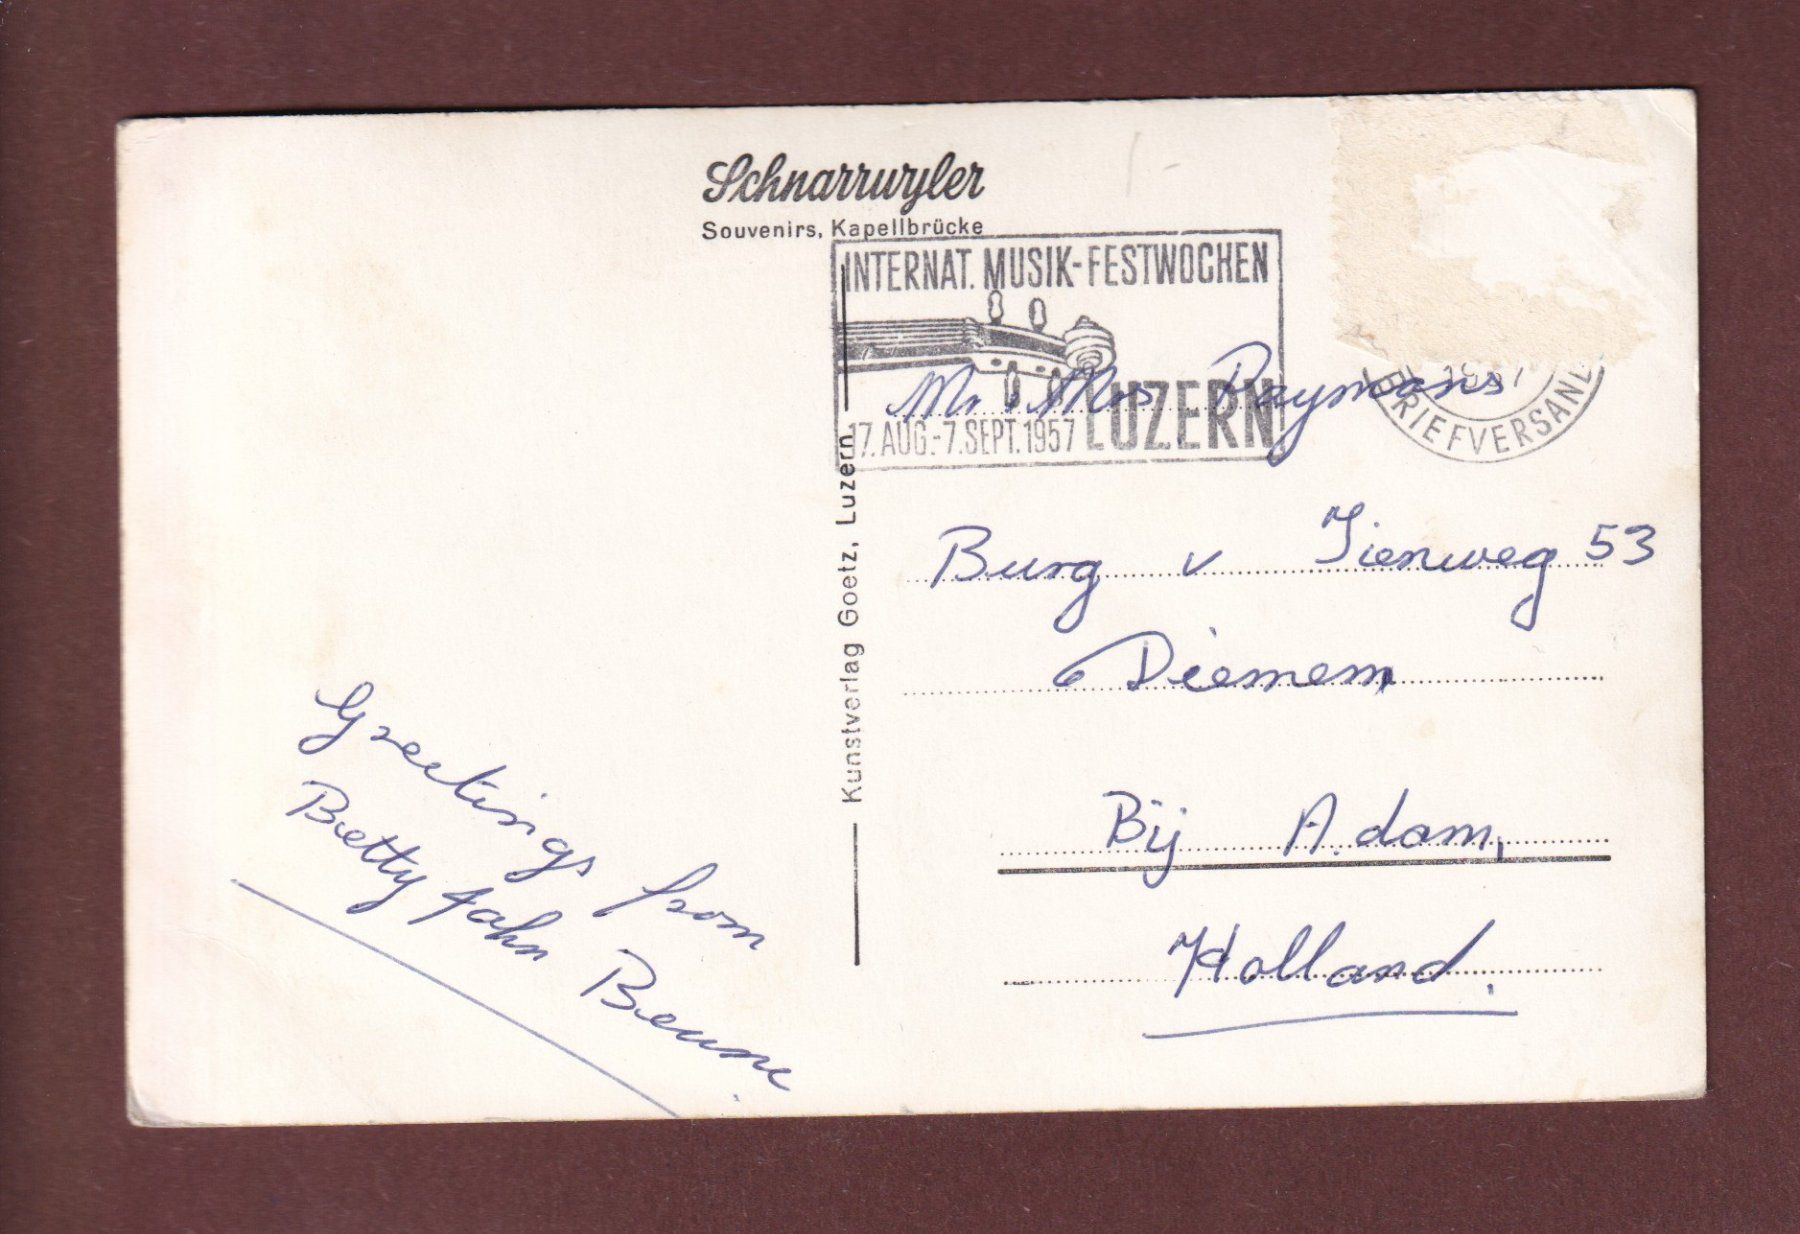 Schnarrwyler
Souvenirs, Kapellbrücke
INTERNAT. MUSIK-FESTWOCHEN
17. AUG.-7. SEPT. 1957 LUZERN
BRIEFVERSAND
Kunstverlag Goetz, Luzern
Mr & Mrs Raymans
Burg v Tienweg 53
Diemem
Bij A.dam,
Holland.
Greetings from
Betty Jahn Beune